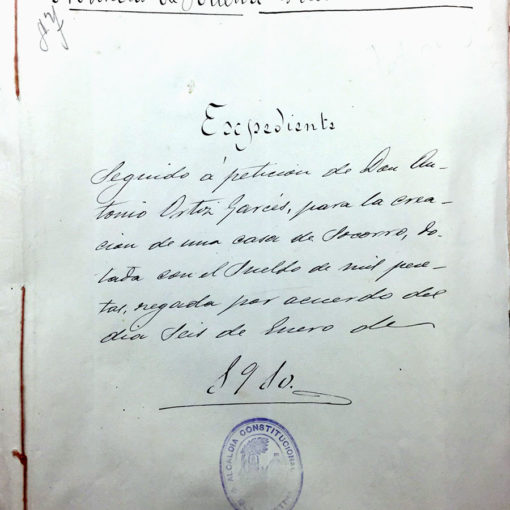 Provincia de
Expediente
Seguido á peticion de Don An-
tonio Ortiz Garcés, para la crea-
cion de una casa de Socorro, do-
tada con el Sueldo de mil pese-
tas, negada por acuerdo del
dia Seis de Enero de
1910.
ALCALDIA CONSTITUCIONAL